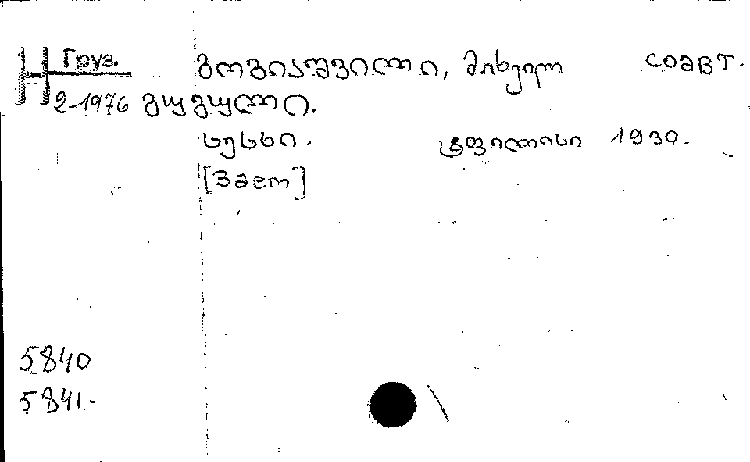 Н Груз. გოგიაშვილი, მიხეილ соавт.
2-1976 გუგული.
სესხი. ტფილისი 1930.
[Заем]
5840
5841.